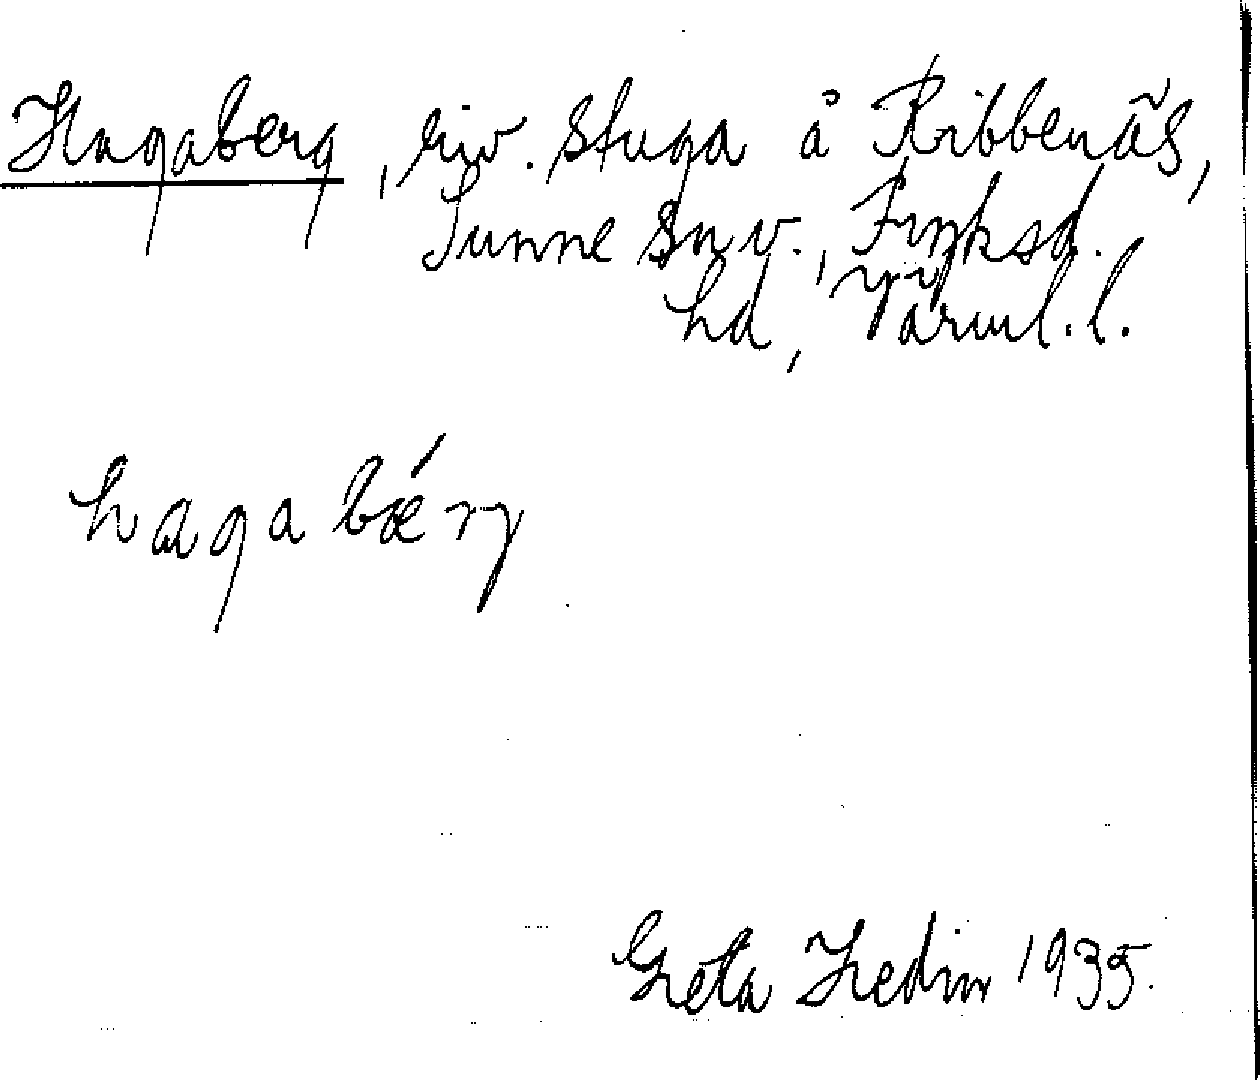 Hagaberg, riv. stuga å Ribbenäs,
Sunne snv., Fryksd.
hd, Värml. l.
hagabǽrj
Greta Hedin 1935.